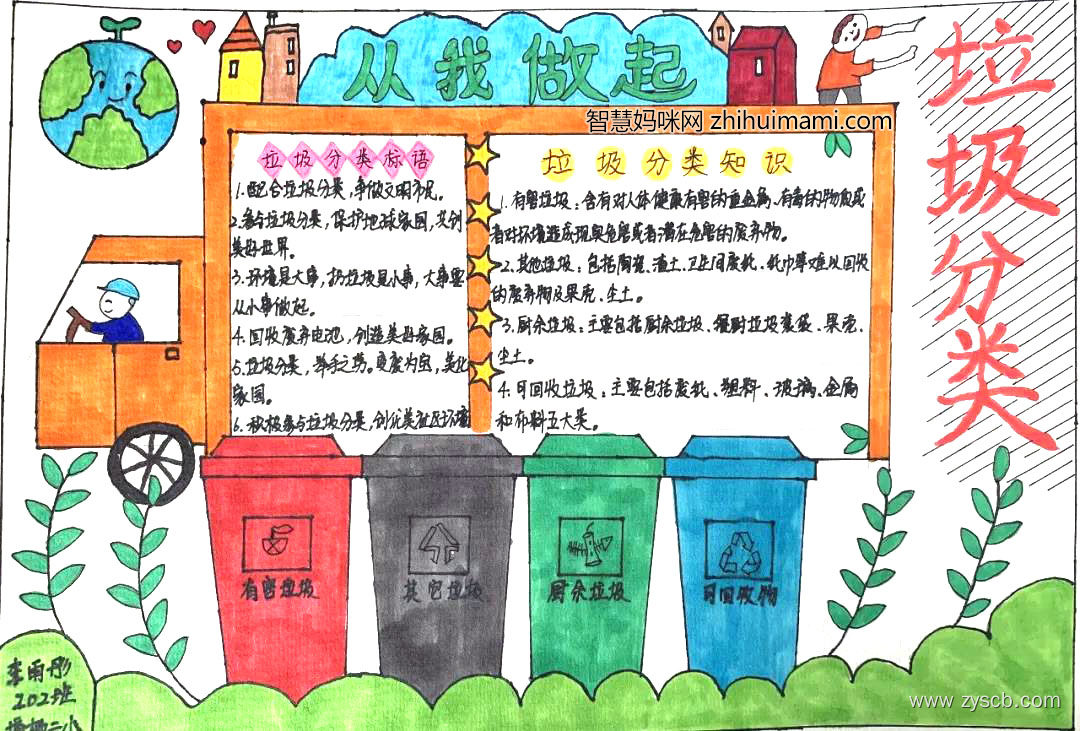 从我做起
智慧妈咪网 zhihuimami.com
垃圾分类
垃圾分类标语
1.配合垃圾分类，争做文明市民。
2.参与垃圾分类，保护地球家园，共创
美好世界。
3.环境是大事，扔垃圾是小事，大事要
从小事做起。
4.回收废弃电池，创造美好家园。
5.垃圾分类，举手之劳。变废为宝，美化
家园。
6.积极参与垃圾分类，创优美社区环境
垃圾分类知识
1.有害垃圾：含有对人体健康有害的重金属、有毒的物质或
者对环境造成现实危害或者潜在危害的废弃物。
2.其他垃圾：包括陶瓷、渣土、卫生间废纸、纸巾等难以回收
的废弃物及果壳、尘土。
3.厨余垃圾：主要包括厨余垃圾、餐厨垃圾袋、果壳、
尘土。
4.可回收垃圾：主要包括废纸、塑料、玻璃、金属
和布料五大类。
有害垃圾
其它垃圾
厨余垃圾
可回收物
李雨彤
202班
二小
www.zyscb.com